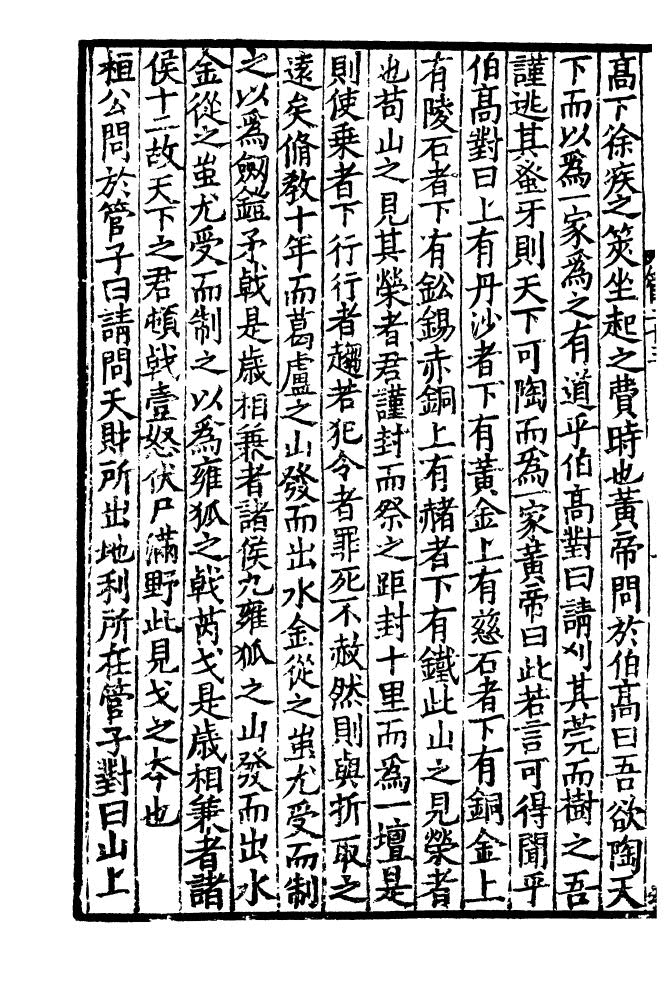 高下徐疾之筴坐起之費時也黃帝問於伯高曰吾欲陶天
下而以爲一家爲之有道乎伯高對曰請刈其莞而樹之吾
謹逃其蚤牙則天下可陶而爲一家黃帝曰此若言可得聞乎
伯高對曰上有丹沙者下有黃金上有慈石者下有銅金上
有陵石者下有鈆錫赤銅上有赭者下有鐵此山之見榮者
也苟山之見其榮者君謹封而祭之距封十里而爲一壇是
則使乗者下行行者趨若犯令者罪死不赦然則與折取之
逺矣脩教十年而葛盧之山發而出水金從之蚩尤受而制
之以爲劔鎧矛戟是歲相兼者諸侯九雍狐之山發而出水
金從之蚩尤受而制之以爲雍狐之戟芮戈是歲相兼者諸
侯十二故天下之君頓戟壹怒伏尸滿野此見戈之夲也
桓公問於管子曰請問天財所出地利所在管子對曰山上